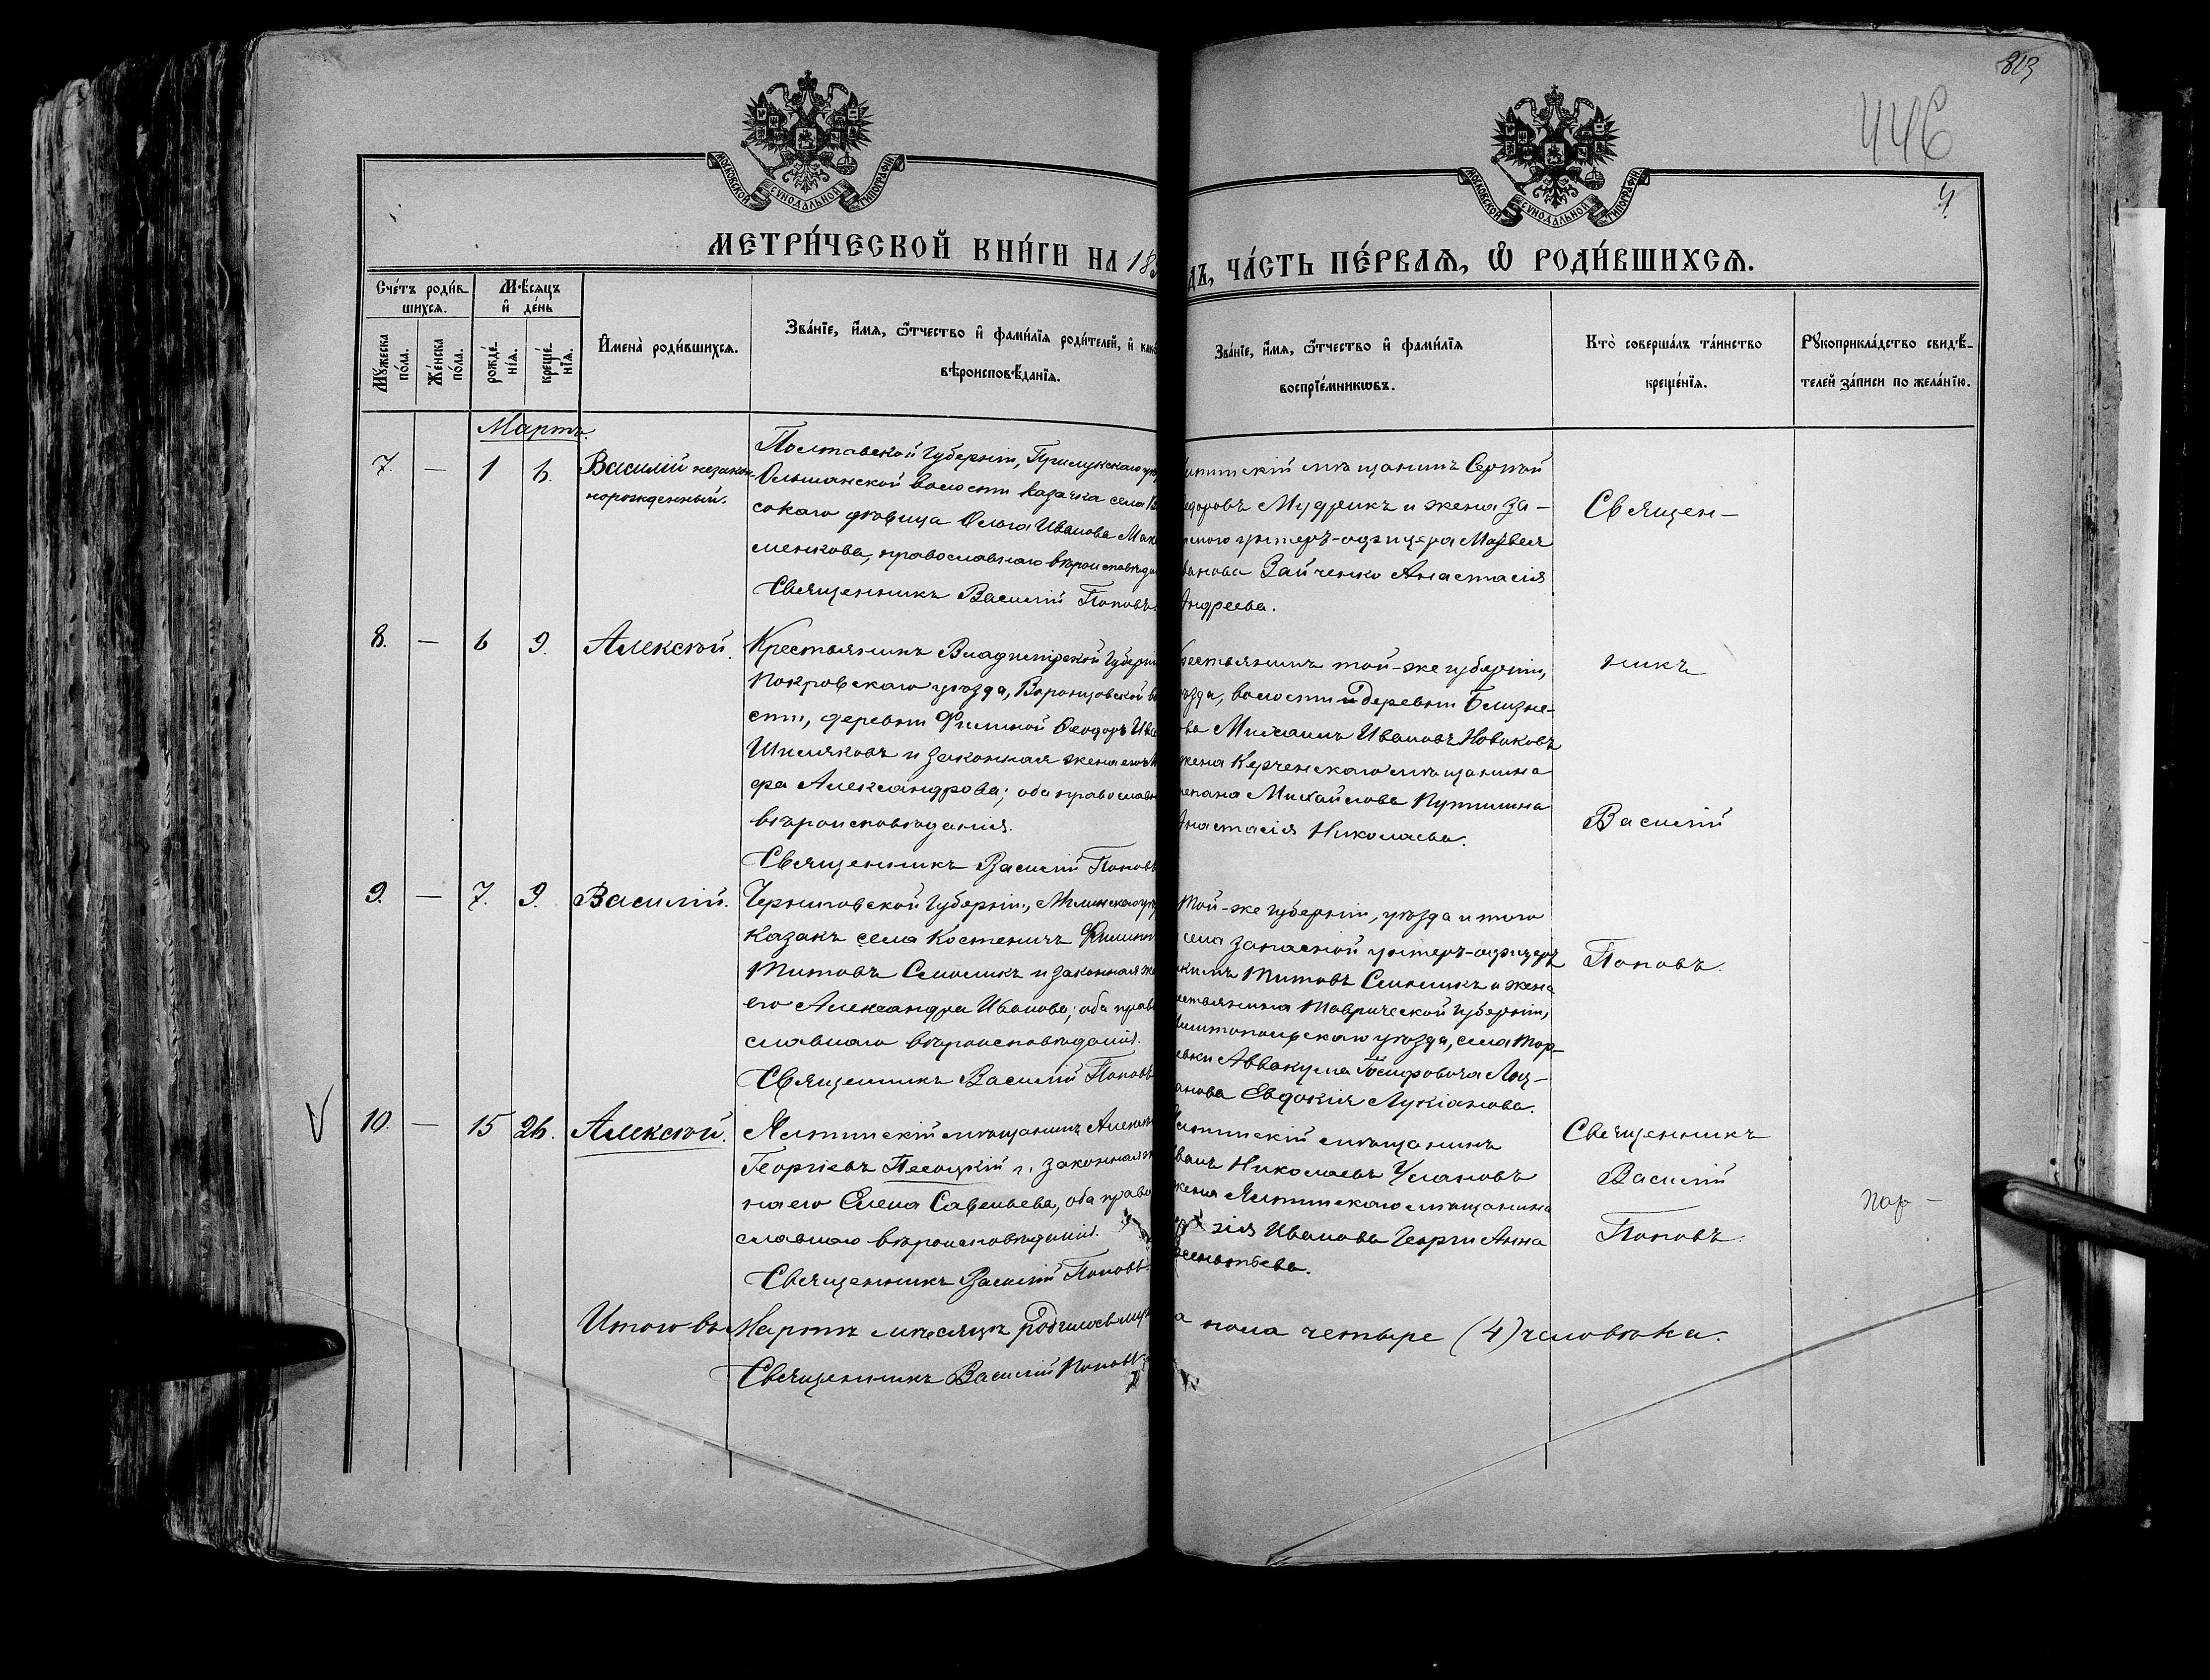 813
446
4
МОСКОВСКОЙ СѴНОДАЛЬНОЙ ТИПОГРАФІИ
МОСКОВСКОЙ СѴНОДАЛЬНОЙ ТИПОГРАФІИ
МЕТРИ́ЧЕСКОЙ КНИ́ГИ НА 18
ДЪ, ЧА́СТЬ ПЕ́РВАѦ, Ѽ РОДИ́ВШИХСѦ.
Сче́тъ роди́в-
шихсѧ.
Мѣ́сѧцъ
и҆ де́нь
Мꙋ́жеска по́ла.
Же́нска по́ла.
рожде́-нїѧ.
креще́-нїѧ.
И҆мена̀ роди́вшихсѧ.
Зва́нїе, и҆́мѧ, ѻ҆́тчество и҆ фами́лїѧ роди́телей, и҆ како
вѣроисповѣ́данїѧ.
Зва́нїе, и҆́мѧ, ѻ҆́тчество и҆ фами́лїѧ
воспрїе́мникѡвъ.
Кто̀ соверша́лъ та́инство
креще́нїѧ.
Рꙋкоприкла́дство свидѣ́-
телей за́писи по жела́нїю.
Мартъ.
7. — 1 6. Василій незакон-
норожденный.
Полтавской Губерніи, Прилукскаго уѣ
Ольшанской волости казачка села В
сокаго дѣвица Ольга Иванова Мак
сименкова, православнаго вѣроисповѣда
Священникъ Василій Поповъ.
лтинскій мѣщанинъ Сергѣй
едоровъ Мудрикъ и жена за-
унтеръ-офицера Матвея
ванова Зайченко Анастасія
Андреева.
Священ-
8. — 6 9. Алексѣй.
Крестьянинъ Владимірской Губерніи
Покровскаго уѣзда, Воронцовской во
сти, деревни Филиной Ѳеодоръ Ива
Шишляковъ и законная жена его
ра Александрова; оба православн
вѣроисповѣданія.
Священникъ Василій Поповъ
рестьянинъ той-же губерніи,
ѣзда, волости и деревни Близне-
ва Михаилъ Ивановъ Новиковъ
жена Керченскаго мѣщанина
тепана Михайлова Путилина
Анастасія Николаева.
никъ
Василій
9. — 7. 9. Василій.
Черниговской Губерніи, Мглинскаго уѣ
казакъ села Костеничъ Филипп
Титовъ Сmоликъ и законная же
его Александра Иванова; оба право
славнаго вѣроисповѣданія.
Священникъ Василій Поповъ
Той-же губерніи, уѣзда и того
села запасной унтеръ-офицеръ
кимъ Титовъ Смоликъ и жена
естьянина Таврической Губерніи,
Мелитопольскаго уѣзда, села Тор-
евки Аввакума Іосифовича Лоц-
анова Евдокія Лукіанова.
Поповъ.
V 10. — 15 26. Алексѣй.
Ялтинскій мѣщанинъ Алекса
Георгіевъ Песоцкій и законная же
на его Елена Савельева, оба право
славнаго вѣроисповѣданія.
Священникъ Василій Поповъ.
Ялтинскій мѣщанинъ
ванъ Николаевъ Улановъ
жена Ялтинскаго мѣщанина
Иванова Георги Анна
Священникъ
Василій
Поповъ.
Итого въ Мартѣ мѣсяцѣ родилось муж
а пола четыре (4) человѣка.
Священникъ Василій Поповъ